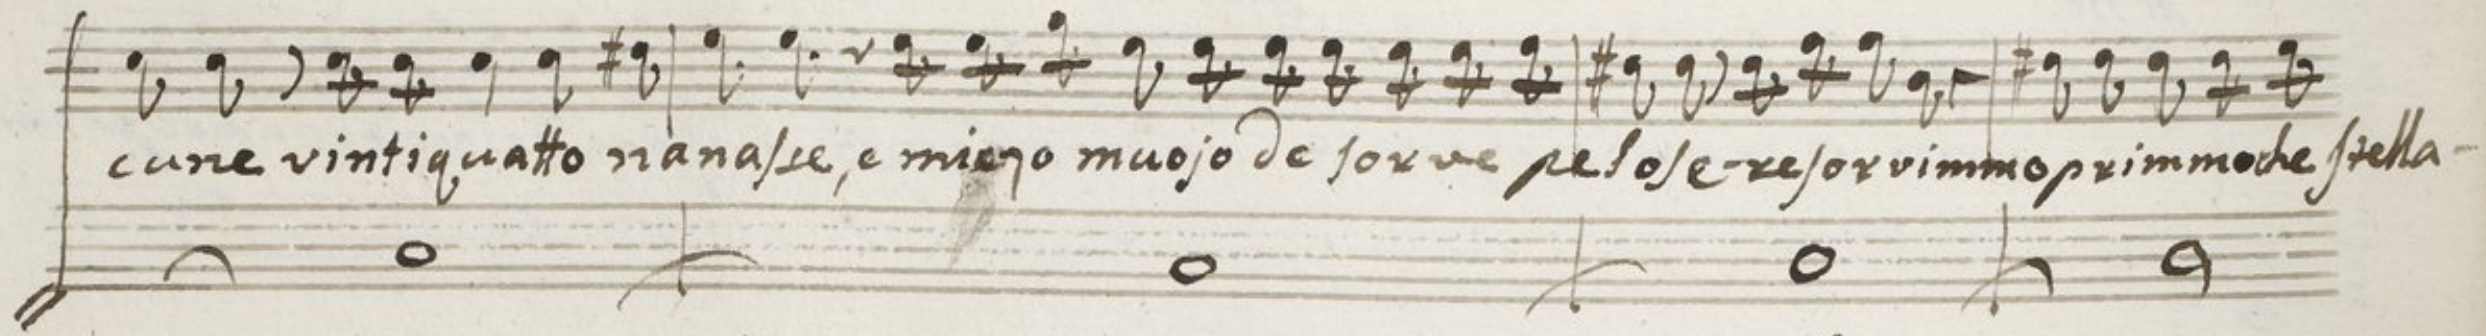 cune vintiquatto nanasse, e miezo muojo de sorve pelose - resorvimmo primmo che stella -